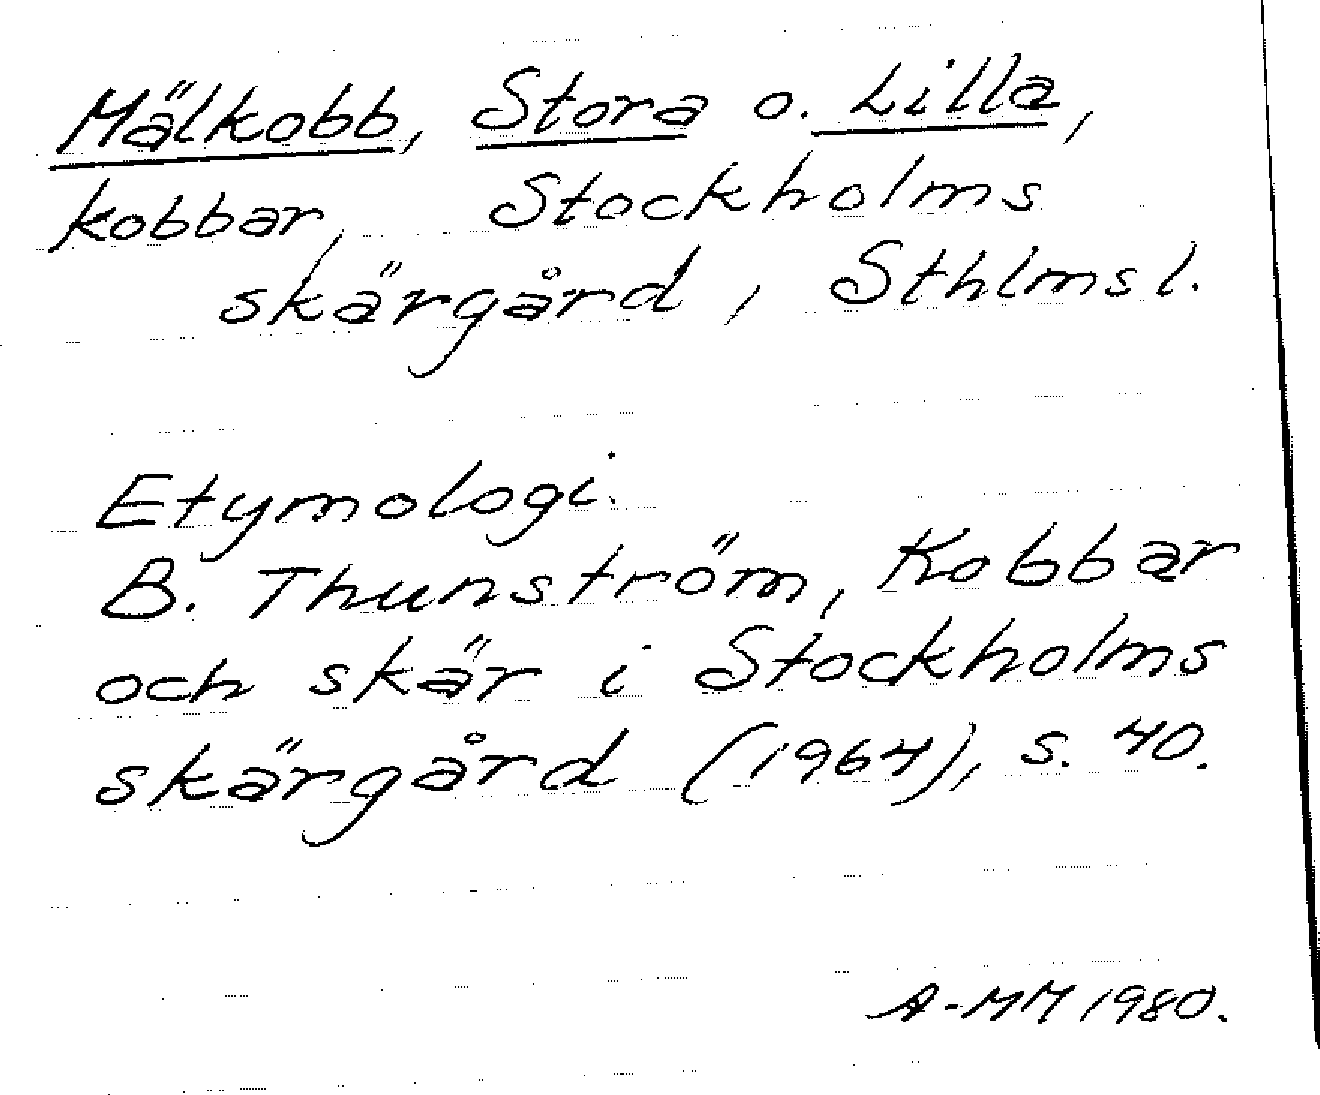 Mälkobb, Stora o. Lilla,
kobbar, Stockholms
skärgård, Sthlms l.
Etymologi.
B. Thunström, Kobbar
och skär i Stockholms
skärgård (1964), s. 40.
A-MM 1980.